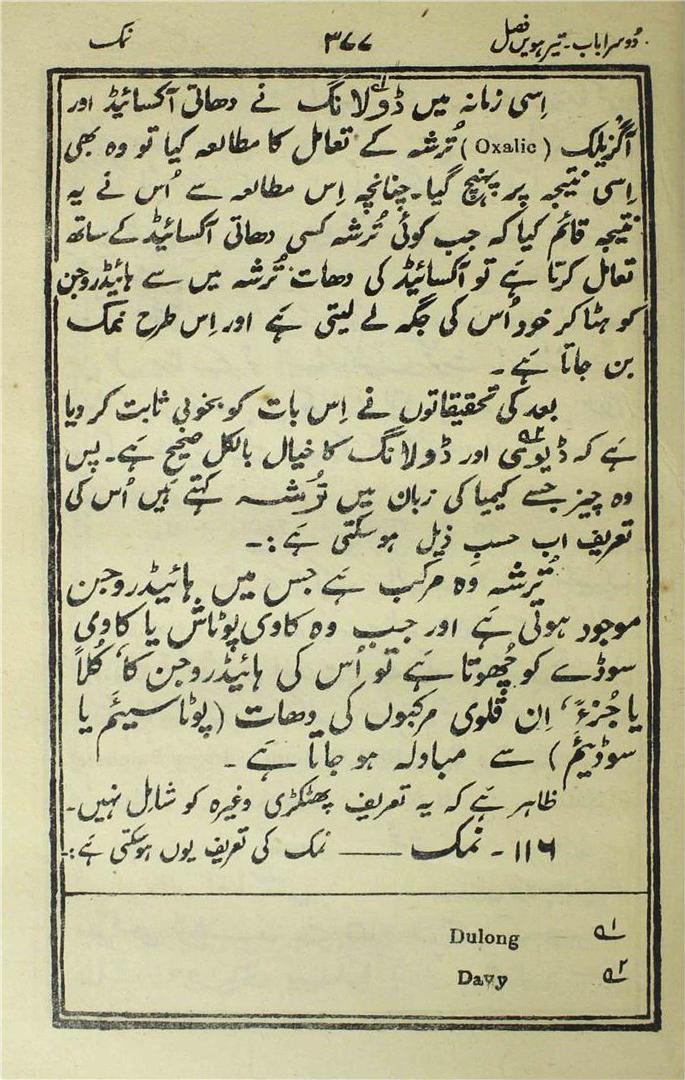 دُوسرا باب۔ تیرہویں فصل ۳۷۷ نمک
اِسی زمانہ میں ڈولانگ۱ نے دھاتی آکسائیڈ اور
آگزیلک (Oxalic) تُرشہ کے تعامل کا مطالعہ کیا تو وہ بھی
اِسی نتیجہ پر پہنچ گیا۔ چنانچہ اِس مطالعہ سے اُس نے یہ
نتیجہ قائم کیا کہ جب کوئی تُرشہ کسی دھاتی آکسائیڈ کے ساتھ
تعامل کرتا ہَے تو آکسائیڈ کی دھات تُرشہ میں سے ہائیڈروجن
کو ہٹا کر خود اُس کی جگہ لے لیتی ہَے اور اِس طرح نمک
بن جاتا ہَے۔
بعد کی تحقیقاتوں نے اِس بات کو بخوبی ثابت کر دیا
ہَے کہ ڈیوی۲ اور ڈولانگ کا خیال بالکل صحیح ہَے۔ پس
وہ چیز جسے کیمیا کی زبان میں تُرشہ کہتے ہَیں اُس کی
تعریف اب حسبِ ذیل ہو سکتی ہَے :۔
تُرشہ وہ مرکب ہَے جس میں ہائیڈروجن
موجود ہوتی ہَے اور جب وہ کاوی پوٹاش یا کاوی
سوڈے کو چُھوتا ہَے تو اُس کی ہائیڈروجن کا، کُلاً
یا جُزءً، اِن قلوی مرکبوں کی دھات (پوٹاسیئم یا
سوڈیئم) سے مبادلہ ہو جاتا ہَے۔
ظاہر ہَے کہ یہ تعریف پھٹکڑی وغیرہ کو شامل نہیں۔
۱۱۶۔ نمک —— نمک کی تعریف یوں ہو سکتی ہَے :۔
۱ Dulong
۲ Davy